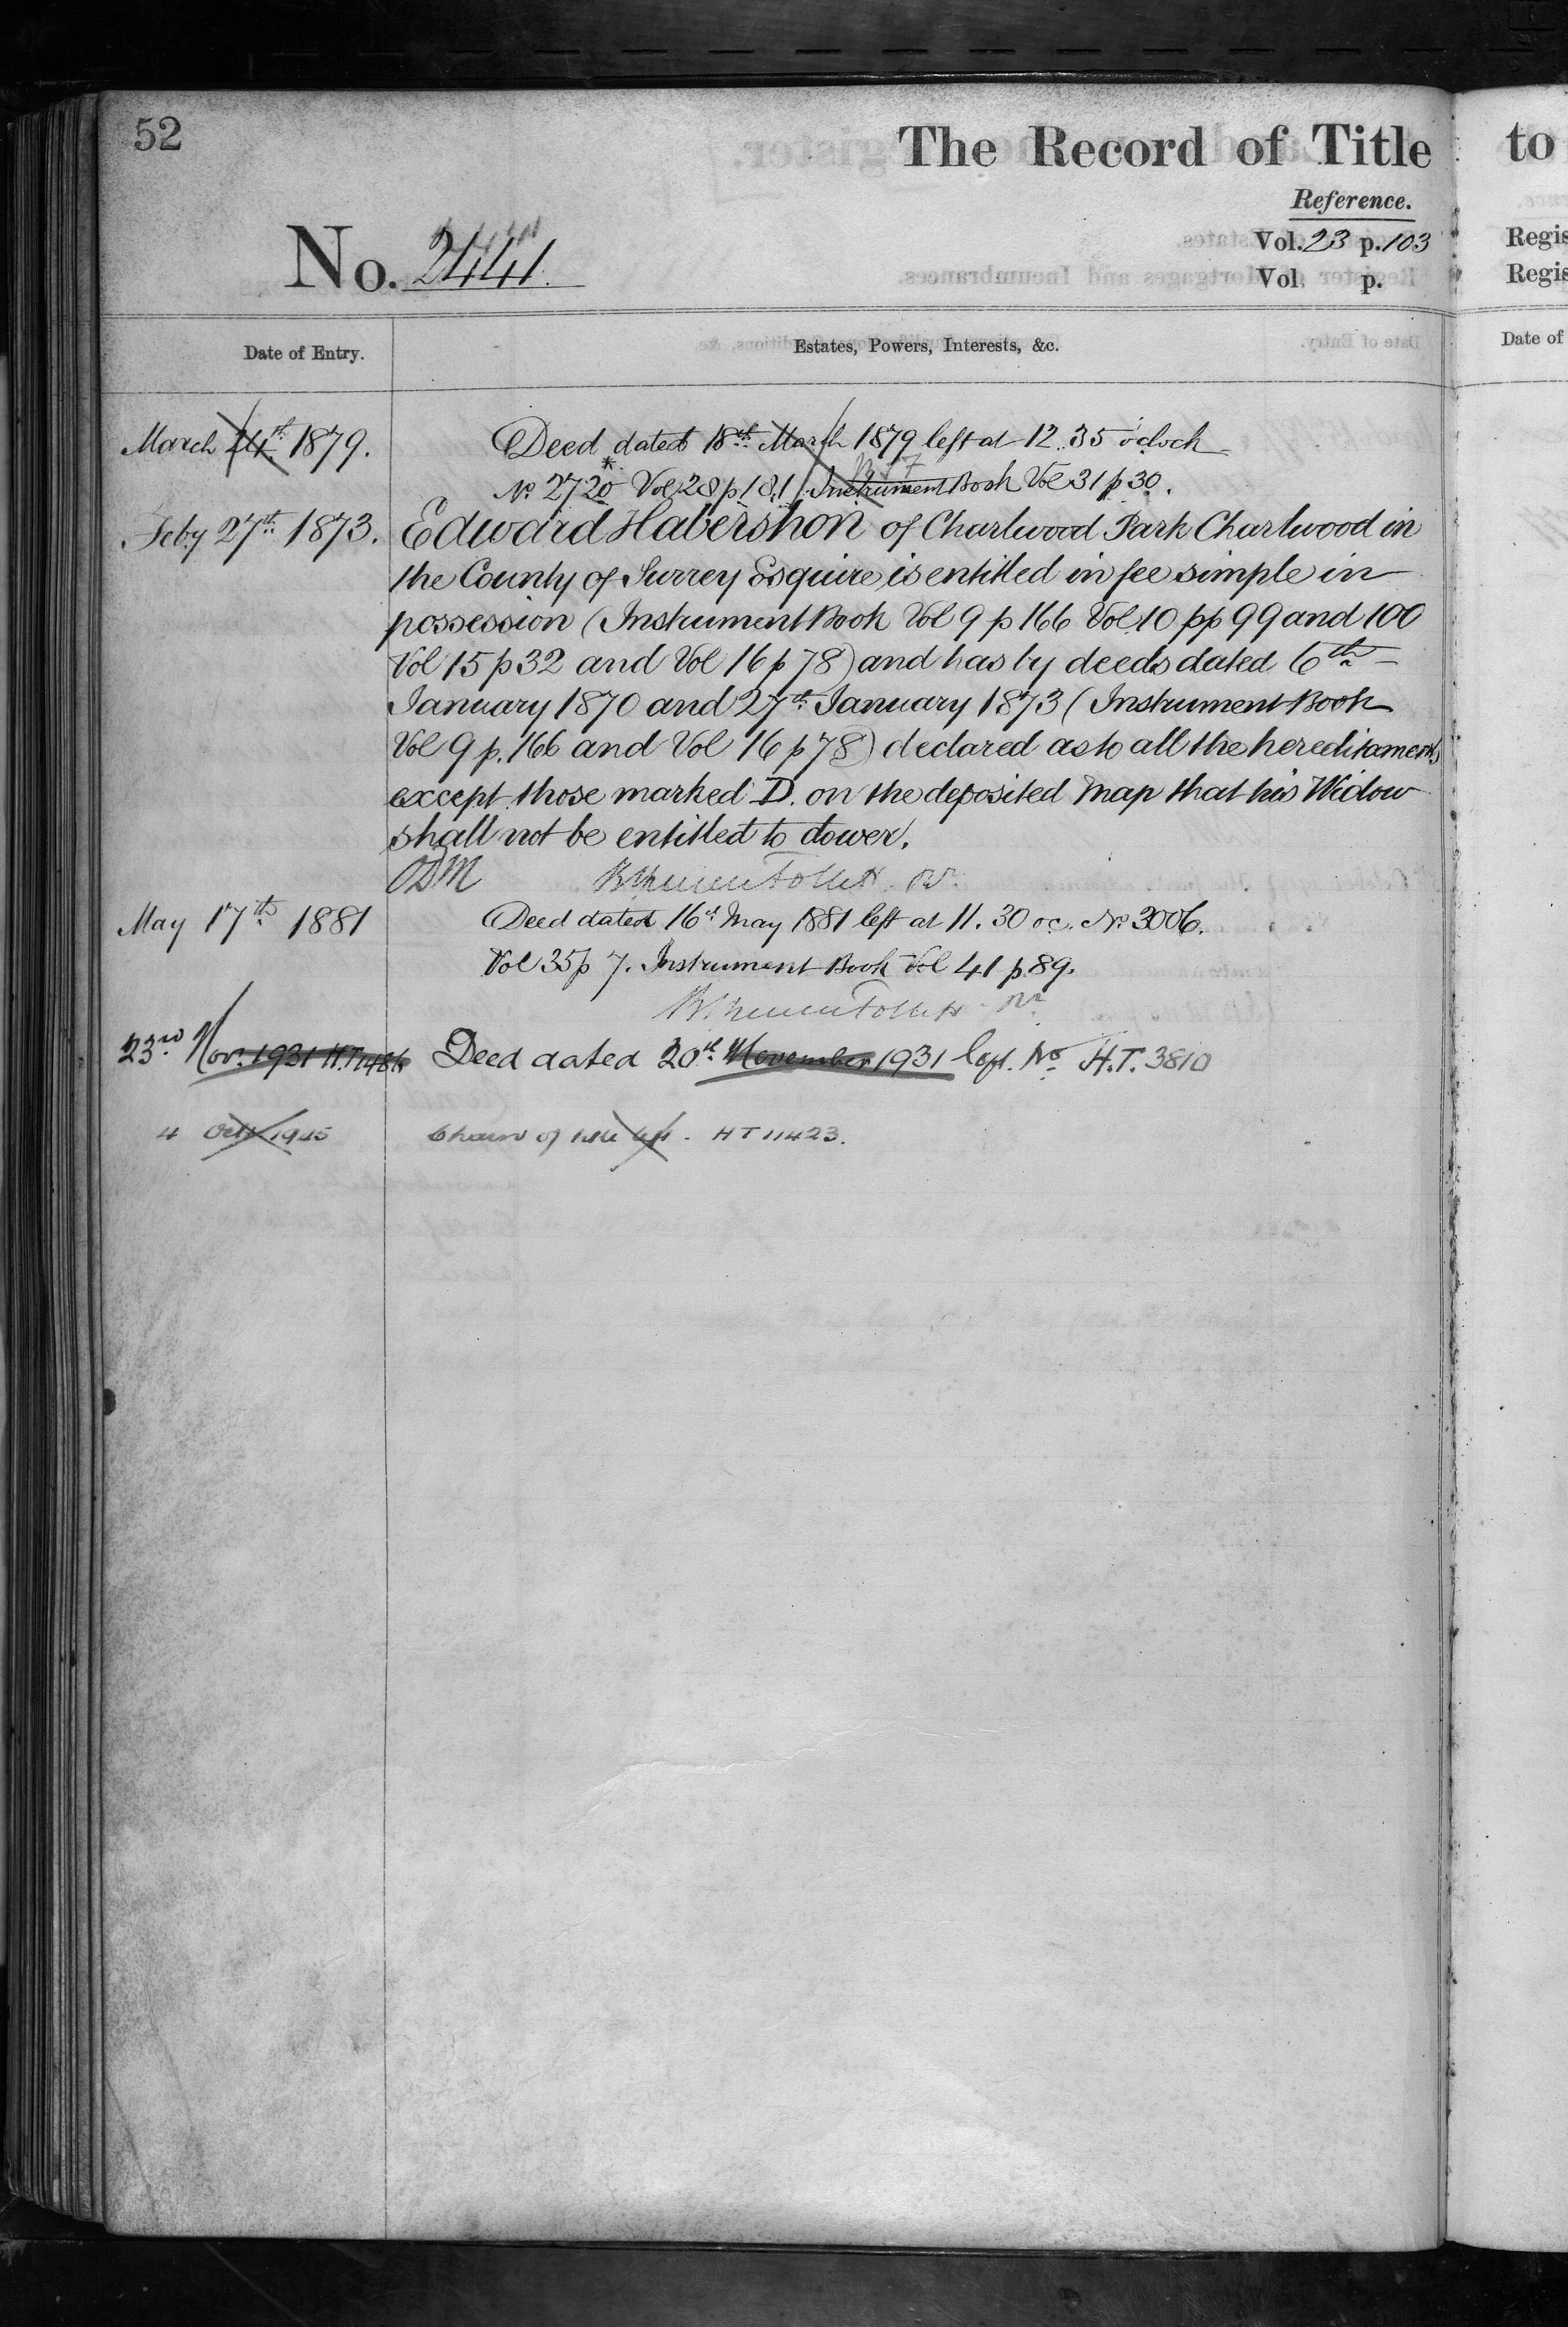 52
The Record of Title
to
Reference.
No. 2441.
Vol. 23 p. 103
Vol. p.
Regis
Regis
Date of Entry.
Estates, Powers, Interests, &c.
Date of
March 24th 1879.
Deed dated 18th March 1879 left at 12.35 o'clock
No 2720 * Vol 28 p 181 Instrument Book Vol 31 p 30.
Feby 27th 1873.
Edward Habershon of Charlwood Park Charlwood in
the County of Surrey Esquire is entitled in fee simple in
possession (Instrument Book Vol 9 p 166 Vol 10 pp 99 and 100
Vol 15 p 32 and Vol 16 p 78) and has by deeds dated 6th
January 1870 and 27th January 1873 (Instrument Book
Vol 9 p. 166 and Vol 16 p 78) declared as to all the hereditaments
except those marked D. on the deposited Map that his Widow
shall not be entitled to dower.
May 17th 1881
Deed dated 16th May 1881 left at 11.30 oc. No 3006.
Vol 35 p 7. Instrument Book Vol 41 p. 89.
23rd Nov. 1931
Deed dated 20th November 1931 left. No H.T. 3810
4 Oct 1945
Chain of title left. HT 11423.